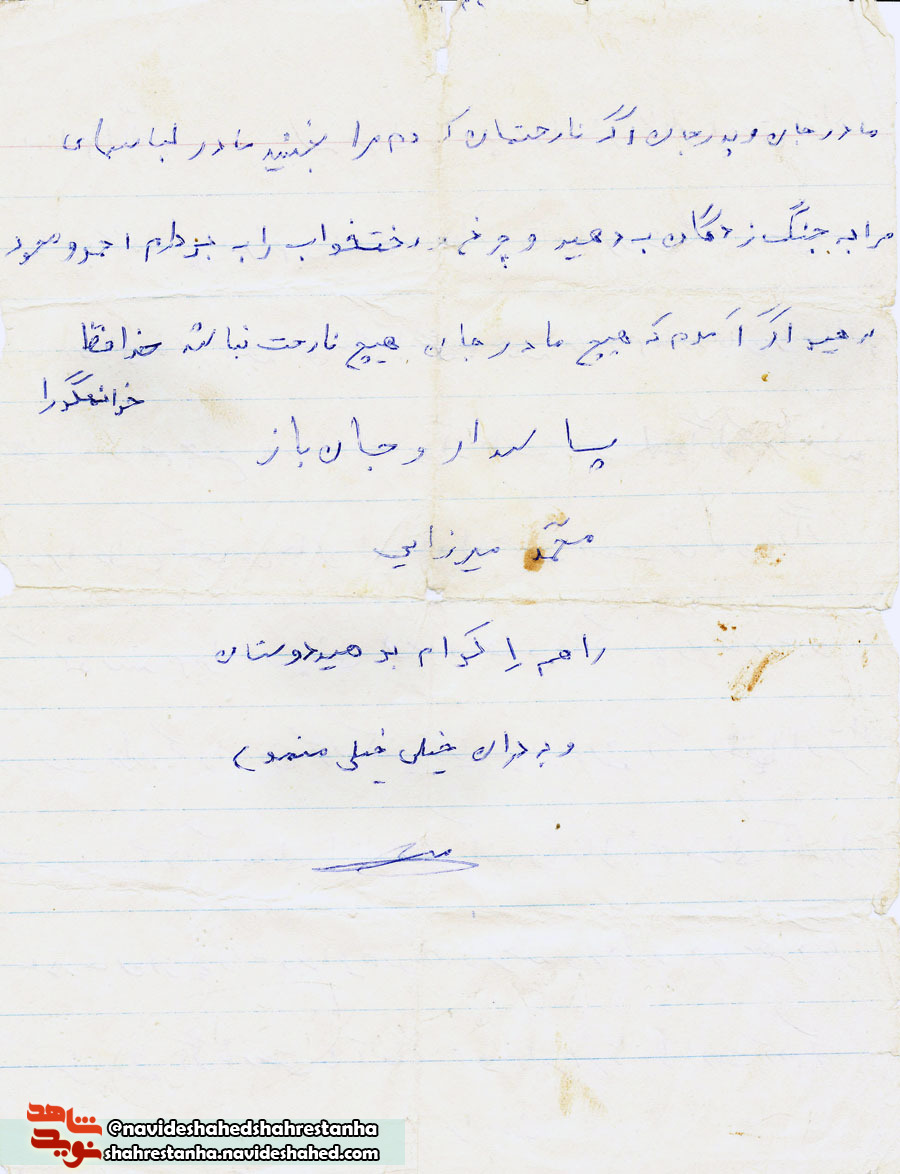 مادر جان و پدر جان اگر ناراحتتان کردم مرا ببخشید مادر لباسهای
مرا به جنگ زدگان بدهید و چرخ و رختخواب را به برادرم احمد و محمود
دهید اگر آمدم که هیچ مادر جان هیچ ناراحت نباش خدا حافظ
پاسدار و جان باز
محمد میرزایی
راهم را کرام بدهید دوستان
و برادران خیلی خیلی ممنون
شاهد
نوید
@navideshahedshahrestanha
shahrestanha.navideshahed.com